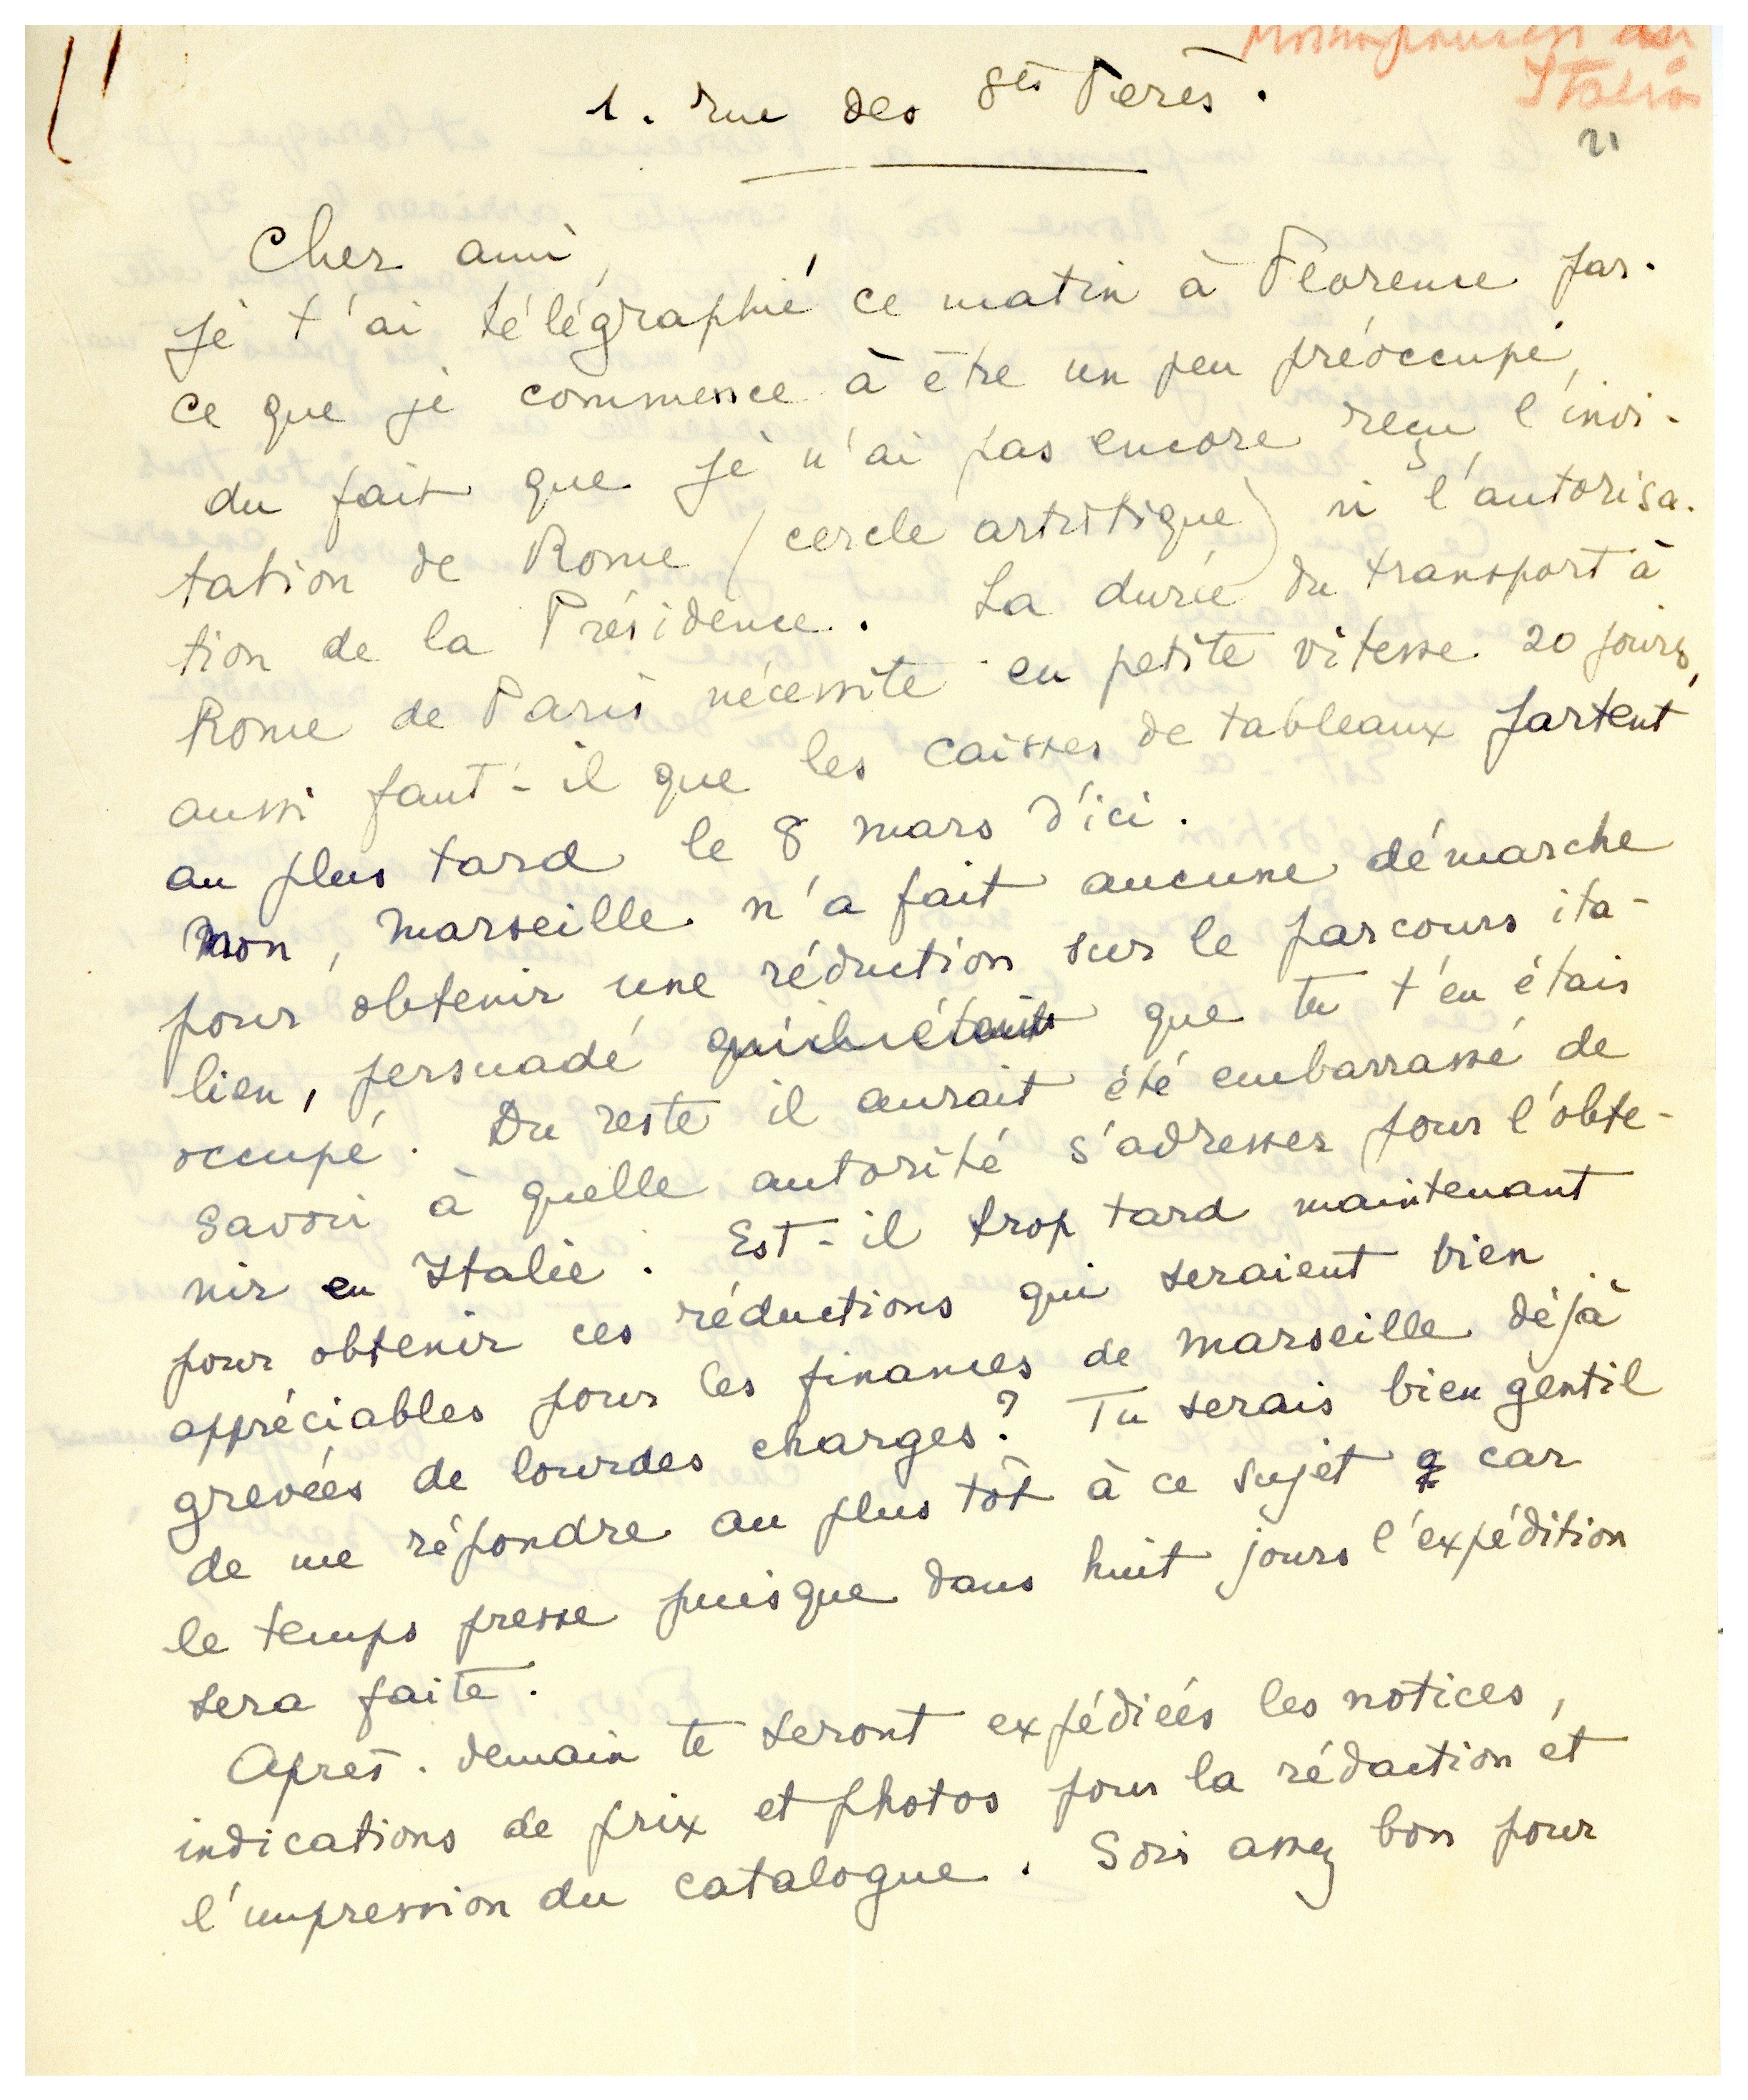 Italia
21
1. rue des Sts Pères.
Cher ami,
Je t'ai télégraphié ce matin à Florence par-
ce que je commence à être un peu préoccupé,
du fait que je n'ai pas encore reçu l'invi-
tation de Rome (cercle artistique) ni l'autorisa-
tion de la Présidence. La durée du transport à
Rome de Paris nécessite en petite vitesse 20 jours,
aussi faut-il que les caisses de tableaux partent
au plus tard le 8 mars d'ici.
Non, Marseille n'a fait aucune démarche
pour obtenir une réduction sur le parcours ita-
lien, persuadé que tu t'en étais
occupé. Du reste il aurait été embarrassé de
savoir à quelle autorité s'adresser pour l'obte-
nir en Italie. Est-il trop tard maintenant
pour obtenir ces réductions qui seraient bien
appréciables pour les finances de Marseille déjà
grevées de lourdes charges? Tu serais bien gentil
de me répondre au plus tôt à ce sujet car
le temps presse puisque dans huit jours l'expédition
sera faite.
Après-demain te seront expédiées les notices,
indications de prix et photos pour la rédaction et
l'impression du catalogue. Sois assez bon pour